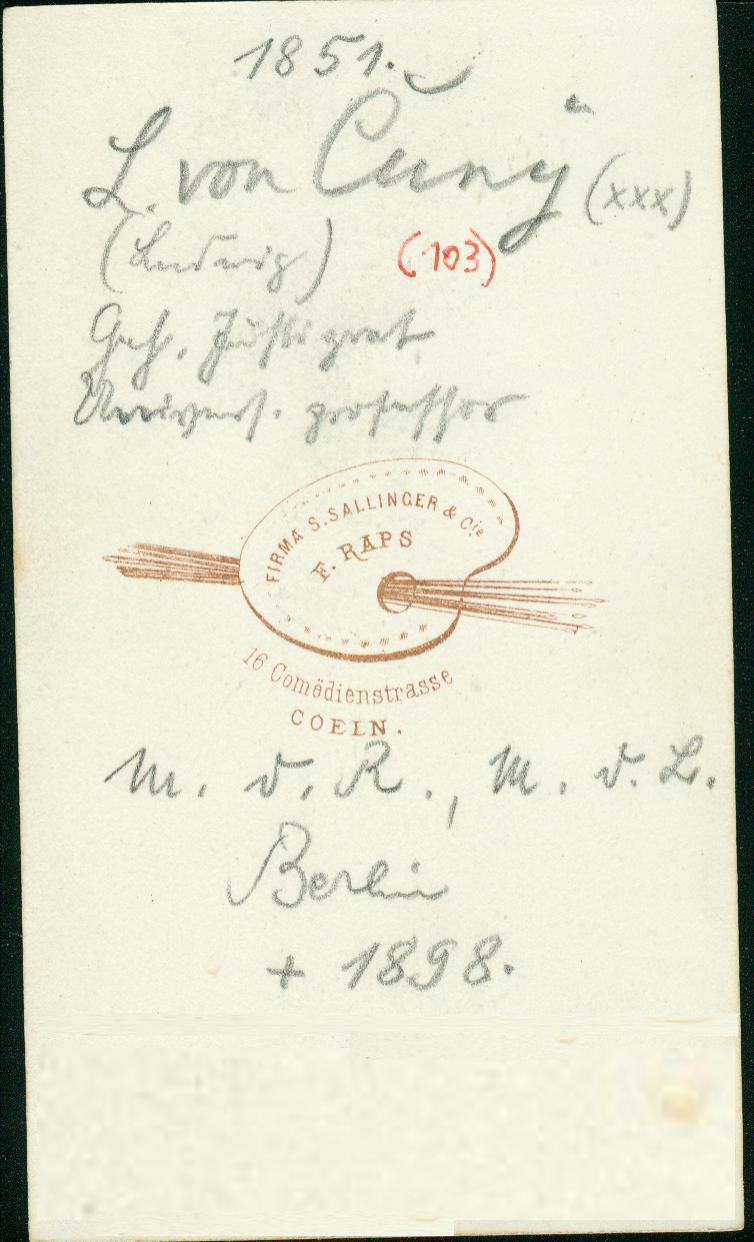 1851.
L. von Cuny (xxx)
(Ludwig) (103)
Geh. Justizrat,
Univers. professor
FIRMA S. SALLINGER & Cie
F. RAPS
16 Comödienstrasse
COELN.
M. d. R., M. d. L.
Berlin
+ 1898.